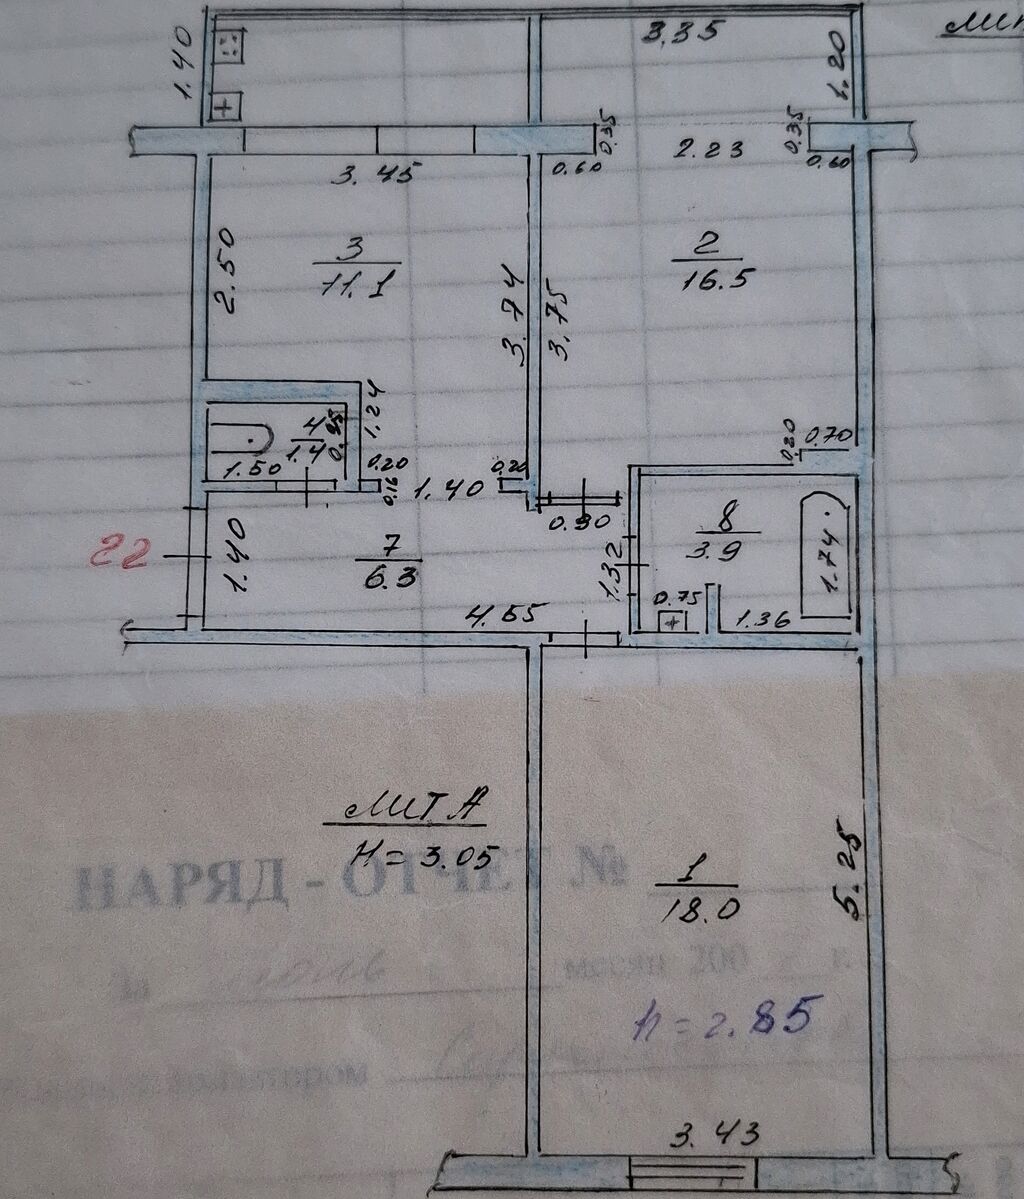 3.35
лит
1.40
1.20
0.35
0.35
2.23
0.60
0.60
3.45
3
11.1
2
16.5
2.50
3.74
3.75
1.24
4
1.4
0.95
0.20
0.70
1.50
0.20
0.16
1.40
0.20
0.90
8
3.9
1.74
22
1.40
7
6.3
1.32
0.75
+
1.36
4.55
ЛИТ А
H = 3.05
НАРЯД - ОТЧЕТ №
1
18.0
5.25
За
месяц 200 г.
h = 2.85
3.43